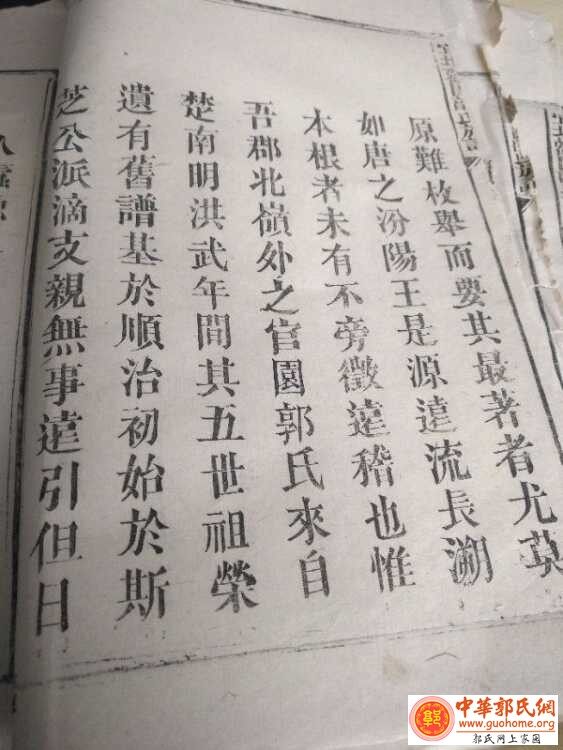 原難枚舉而要其最著者尤莫
如唐之汾陽王是源遠流長溯
本根者未有不旁徵遠稽也惟
吾郡北嶺外之官園郭氏來自
楚南明洪武年間其五世祖榮
遺有舊譜基於順治初始於斯
芝公派滴支親無事遠引但日
中華郭氏網
www.guohome.org
郭氏网上家園